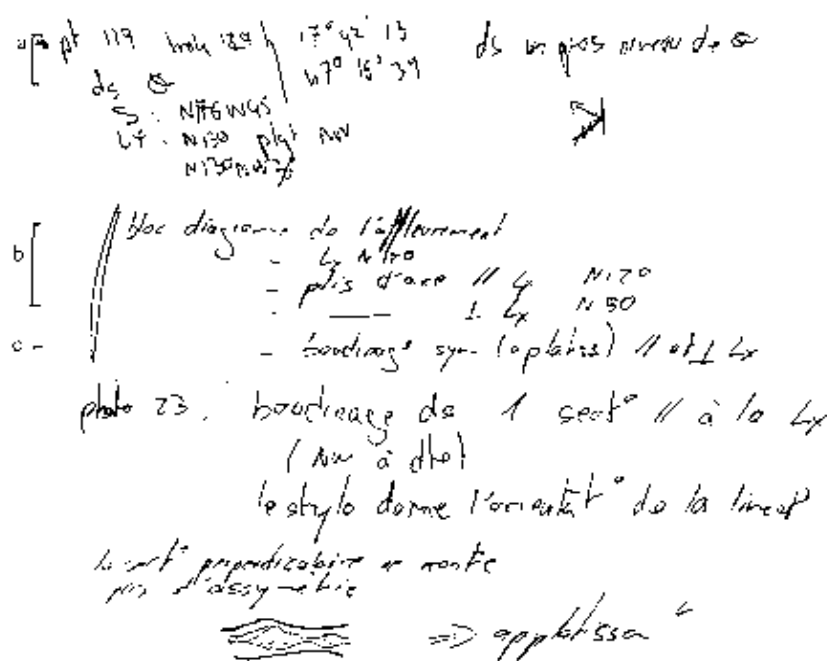 a pt 119 17° 42' 13 ds un gros niveau de
ds 47° 16' 39
S : N76 W45
Lx : N130 plgt NW
N130
b bloc diagramme de l'affleurement
- Lx N120
- plis d'axe // Lx N120
- —— ⊥ Lx N30
c - - boudinage sym (aplatiss) // et ⊥ Lx
photo 23 : boudinage de 1 sect° // à la Lx
(NW à dte)
le stylo donne l'orientat° de la lineat°
la sect° perpendiculaire ne montre
pas d'assymétrie
=> applatissa